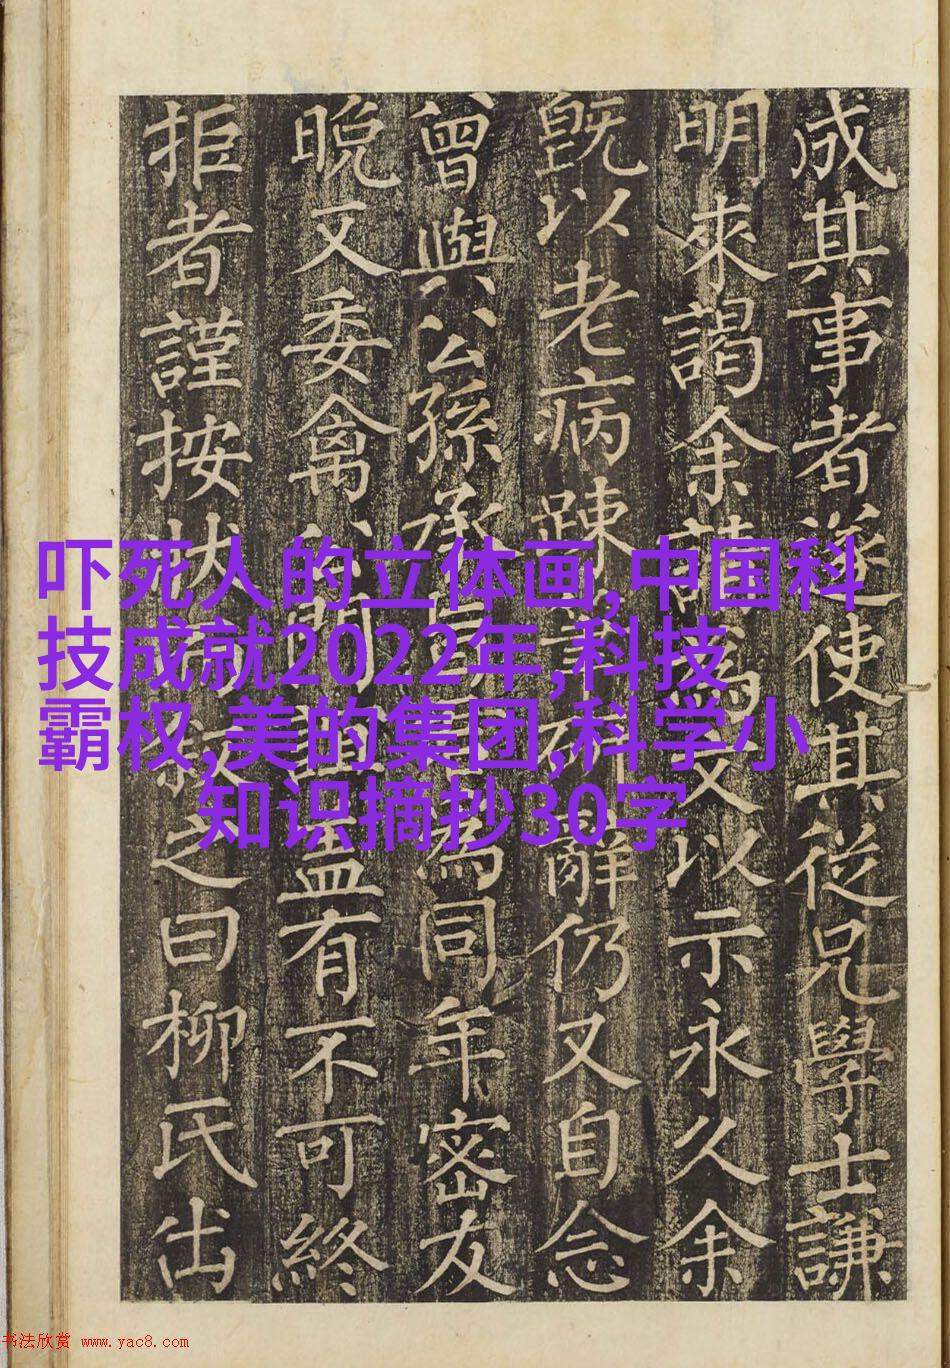 成其事者遂使其從兄學士謙
明來謁余請為文以示永久余
既以老病踈研辭仍又自念
曾與公孫承為同年密友
晚又委禽誼盖有不可終
拒者謹按状叙之曰柳氏出
吓死人的立体画,中国科
技成就2022年,科技
霸权,美的集团,科学小
知识摘抄30字
书法欣赏 www.yac8.com